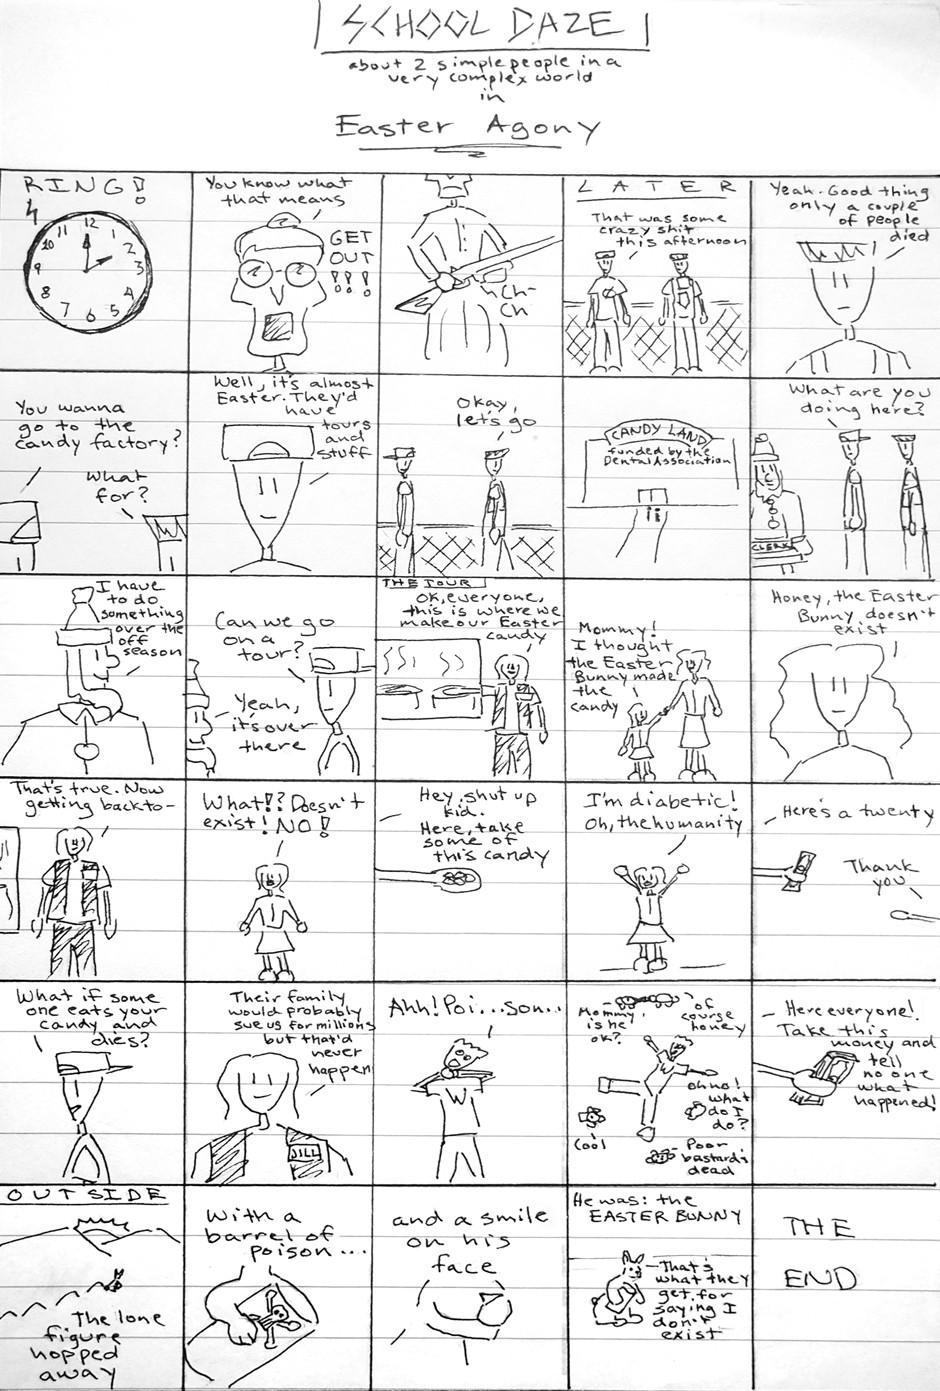 SCHOOL DAZE
about 2 simple people in a
very complex world
in
Easter Agony
RING!
12
1
2
3
4
5
6
7
8
9
10
11
You know what
that means
GET
OUT
!!!
Ch-
Ch
LATER
That was some
crazy shit
this afternoon
Yeah. Good thing
only a couple
of people
died
You wanna
go to the
candy factory?
What
for?
Well, it's almost
Easter. They'd
have
tours
and
stuff
Okay,
let's go
CANDY LAND
funded by the
Dental Association
What are you
doing here?
CLERK
I have
to do
something
over the
off
season
Can we go
on a
tour?
Yeah,
it's over
there
THE TOUR
OK, everyone,
this is where we
make our Easter
candy
Mommy!
I thought
the Easter
Bunny made
the
candy
Honey, the Easter
Bunny doesn't
exist
That's true. Now
getting back to-
What!? Doesn't
exist! NO!
Hey, shut up
kid.
Here, take
some of
this candy
I'm diabetic!
Oh, the humanity
Here's a twenty
Thank
you
What if some
one eats your
candy and
dies?
Their family
would probably
sue us for millions
but that'd
never
happen
JILL
Ahh! Poi...son...
W
Mommy,
is he
ok?
of
course
honey
oh no!
what
do I
do?
Cool
Poor
bastard's
dead
Here everyone!
Take this
money and
tell
no one
what
happened!
OUTSIDE
The lone
figure
hopped
away
With a
barrel of
poison...
and a smile
on his
face
He was: the
EASTER BUNNY
That's
what they
get for
saying I
don't
exist
THE
END